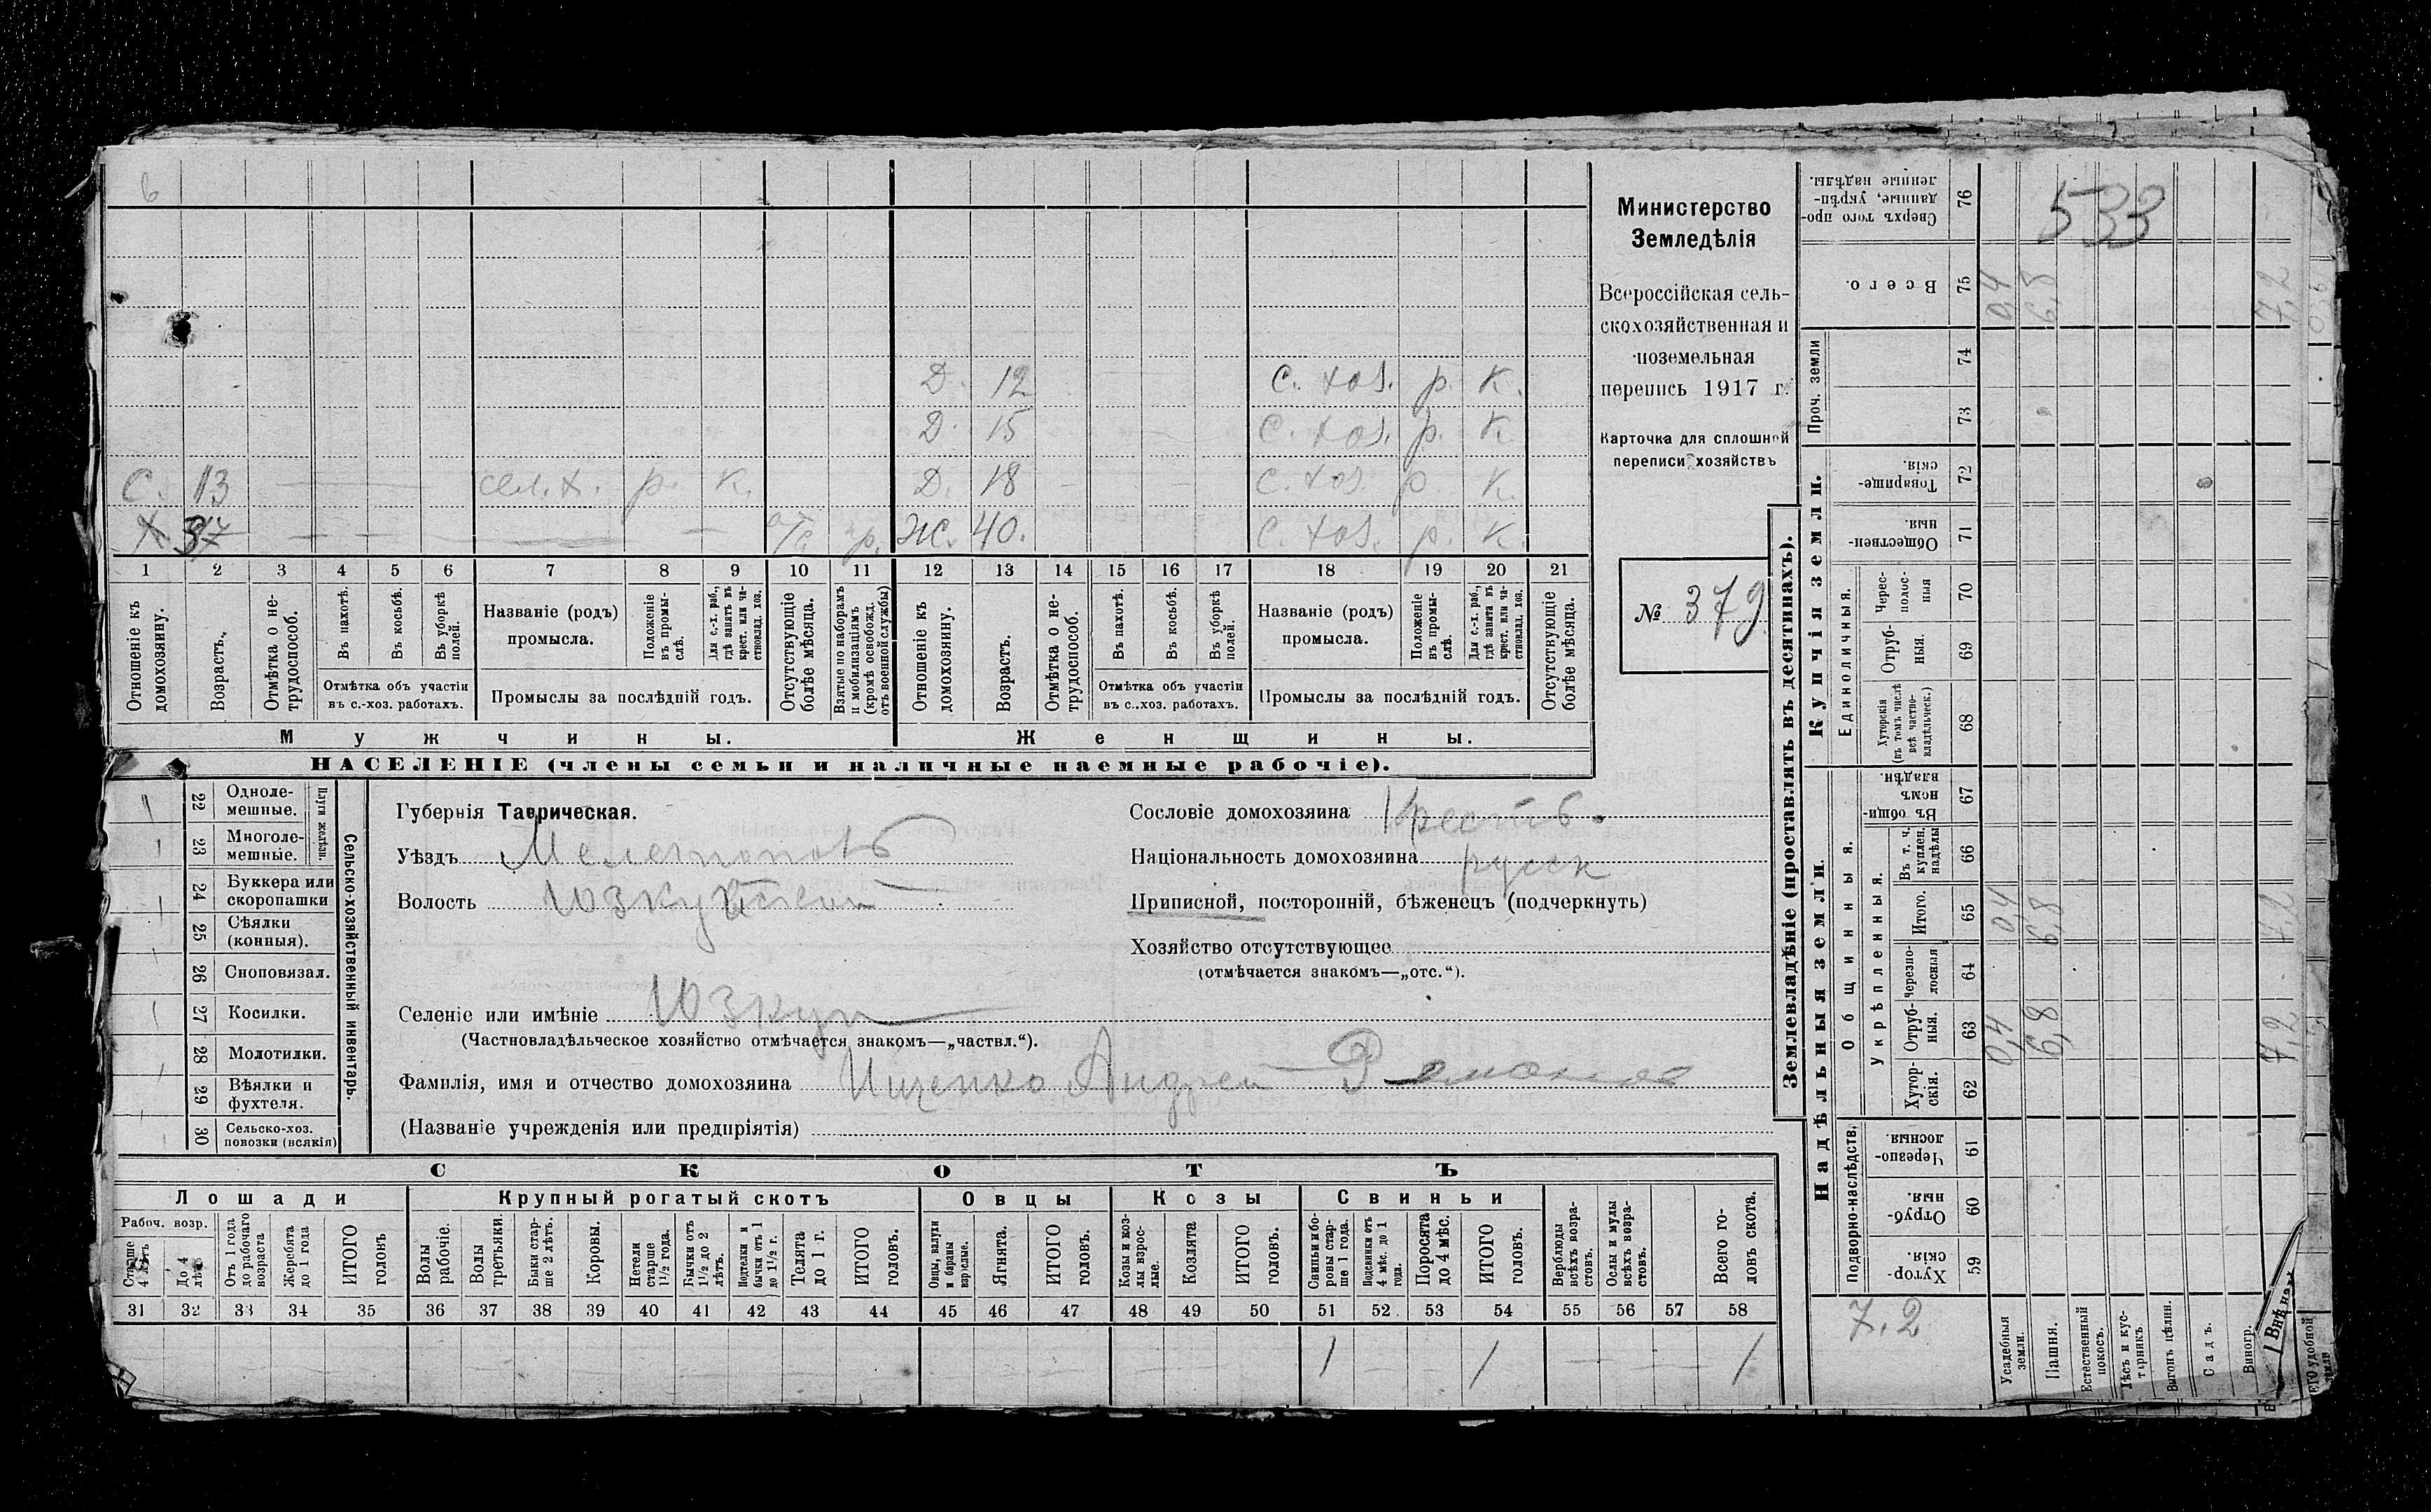 6
Д. 12 С. хоз. р. К.
Д. 15 С. хоз. р. К.
С. 13 сел. х. р. К. Д. 18 С. хоз. р. К.
Х 37 от. р. Ж. 40. С. хоз. р. К.
1 2 3 4 5 6 7 8 9 10 11 12 13 14 15 16 17 18 19 20 21
Отношеніе къ домохозяину.
Возрастъ.
Отмѣтка о нетрудоспособ.
Въ пахотѣ.
Въ косьбѣ.
Въ уборкѣ полей.
Отмѣтка объ участіи въ с.-хоз. работахъ.
Названіе (родъ) промысла.
Положеніе въ промыслѣ.
Для с.-х. раб., гдѣ занятъ въ крест. или частновлад. хоз.
Промыслы за послѣдній годъ.
Отсутствующіе болѣе мѣсяца.
Взятые по наборамъ и мобилизаціямъ (кромѣ освобожд. отъ военной службы)
Отношеніе къ домохозяину.
Возрастъ.
Отмѣтка о нетрудоспособ.
Въ пахотѣ.
Въ косьбѣ.
Въ уборкѣ полей.
Отмѣтка объ участіи въ с.-хоз. работахъ.
Названіе (родъ) промысла.
Положеніе въ промыслѣ.
Для с.-х. раб., гдѣ занята въ крест. или частновлад. хоз.
Промыслы за послѣдній годъ.
Отсутствующіе болѣе мѣсяца.
Мужчины. Женщины.
НАСЕЛЕНІЕ (члены семьи и наличные наемные рабочіе).
Министерство
Земледѣлія
Всероссійская сель-
скохозяйственная и
поземельная
перепись 1917 г.
Карточка для сплошной
переписи хозяйствъ
№ 379
22 Однолемешные.
23 Многолемешные.
Плуги желѣзн.
24 Буккера или скоропашки
25 Сѣялки (конныя).
26 Сноповязал.
27 Косилки.
28 Молотилки.
29 Вѣялки и фухтеля.
30 Сельско-хоз. повозки (всякія)
Сельско-хозяйственный инвентарь.
Губернія Таврическая.
Уѣздъ Мелетополь
Волость Юзкуйской
Селеніе или имѣніе Юзкуи
(Частновладѣльческое хозяйство отмѣчается знакомъ—„частвл.“).
Фамилія, имя и отчество домохозяина Ищенко Андрей
(Названіе учрежденія или предпріятія)
Сословіе домохозяина Крестьб.
Національность домохозяина русск
Приписной, посторонній, бѣженецъ (подчеркнуть)
Хозяйство отсутствующее
(отмѣчается знакомъ—„отс.“).
СКОТЪ
Лошади Крупный рогатый скотъ Овцы Козы Свиньи
Рабоч. возр.
Старше 4 лѣтъ
До 4 лѣтъ
Отъ 1 года до рабочаго возраста
Жеребята до 1 года
ИТОГО головъ
Волы рабочіе.
Волы третьяки.
Быки старше 2 лѣтъ.
Коровы.
Нетели старше 1½ года.
Бычки отъ 1½ до 2 лѣтъ.
Подтелки и бычки отъ 1 до 1½ г.
Телята до 1 г.
ИТОГО головъ.
Овцы, валухи и бараны взрослые.
Ягнята.
ИТОГО головъ.
Козы и козлы взрослые.
Козлята
ИТОГО головъ.
Свиньи и боровы старше 1 года.
Подсвинки отъ 4 мѣс. до 1 года.
Поросята до 4 мѣс.
ИТОГО головъ.
Верблюды всѣхъ возрастовъ.
Ослы и мулы всѣхъ возрастовъ.
Всего головъ скота.
31 32 33 34 35 36 37 38 39 40 41 42 43 44 45 46 47 48 49 50 51 52 53 54 55 56 57 58
1 1 1
Землевладѣніе (проставлять въ десятинахъ).
533
Сверхъ того проданные, укрѣпленные надѣлы. 76
Всего. 75 0,4 6,8 7,2
Проч. земли 74 73
Купчія земли.
Товарищескія. 72
Общественныя. 71
Единоличныя.
Чересполосныя 70
Отрубныя. 69
Хуторскія (въ томъ числѣ всѣ частновладѣльческ.) 68
Надѣльныя земли.
Общинныя.
Въ общинномъ владѣн. 67
Укрѣпленныя.
Въ т. ч. куплен. надѣлы 66
Итого. 65 0,4 6,8 7,2
Черезполосныя 64
Отрубныя. 63 0,4 6,8 7,2
Хуторскія. 62
Подворно-наслѣдств.
Черезполосныя. 61
Отрубныя. 60
Хуторскія. 59
7.2
Усадебныя земли.
Пашня.
Естественный покосъ.
Лѣсъ и кустарникъ.
Выгонъ цѣлин.
Садъ.
Виногр.